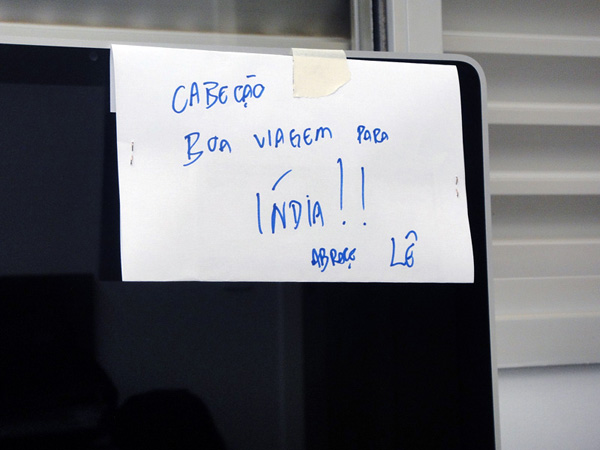 CABEÇÃO
BOA VIAGEM PARA
ÍNDIA!!
ABRAÇO LÊ